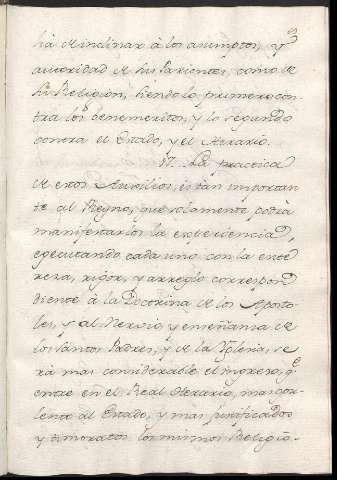 ha de inclinar à los asumptos, y
autoridad de sus Parientes, como de
su Religion, siendo lo primero con-
tra los benemeritos, y lo segundo
contra el Estado, y el Herario.
17. La practica
de estos Auxilios, es tan importan-
te al Reyno, que solamente podrà
manifestarlos la experiencia,
egecutando cada uno con la ente
reza, rigor, y arreglo correspon
diente à la Doctrina de los Aposto-
les, y al
y enseñanza de
los Santos Padres, y de la Yglesia, se
rà mas considerable el ingreso, qe
entre en el Real Herario, mas
al Estado, y mas justificados
y timoratos los mismos Religio-